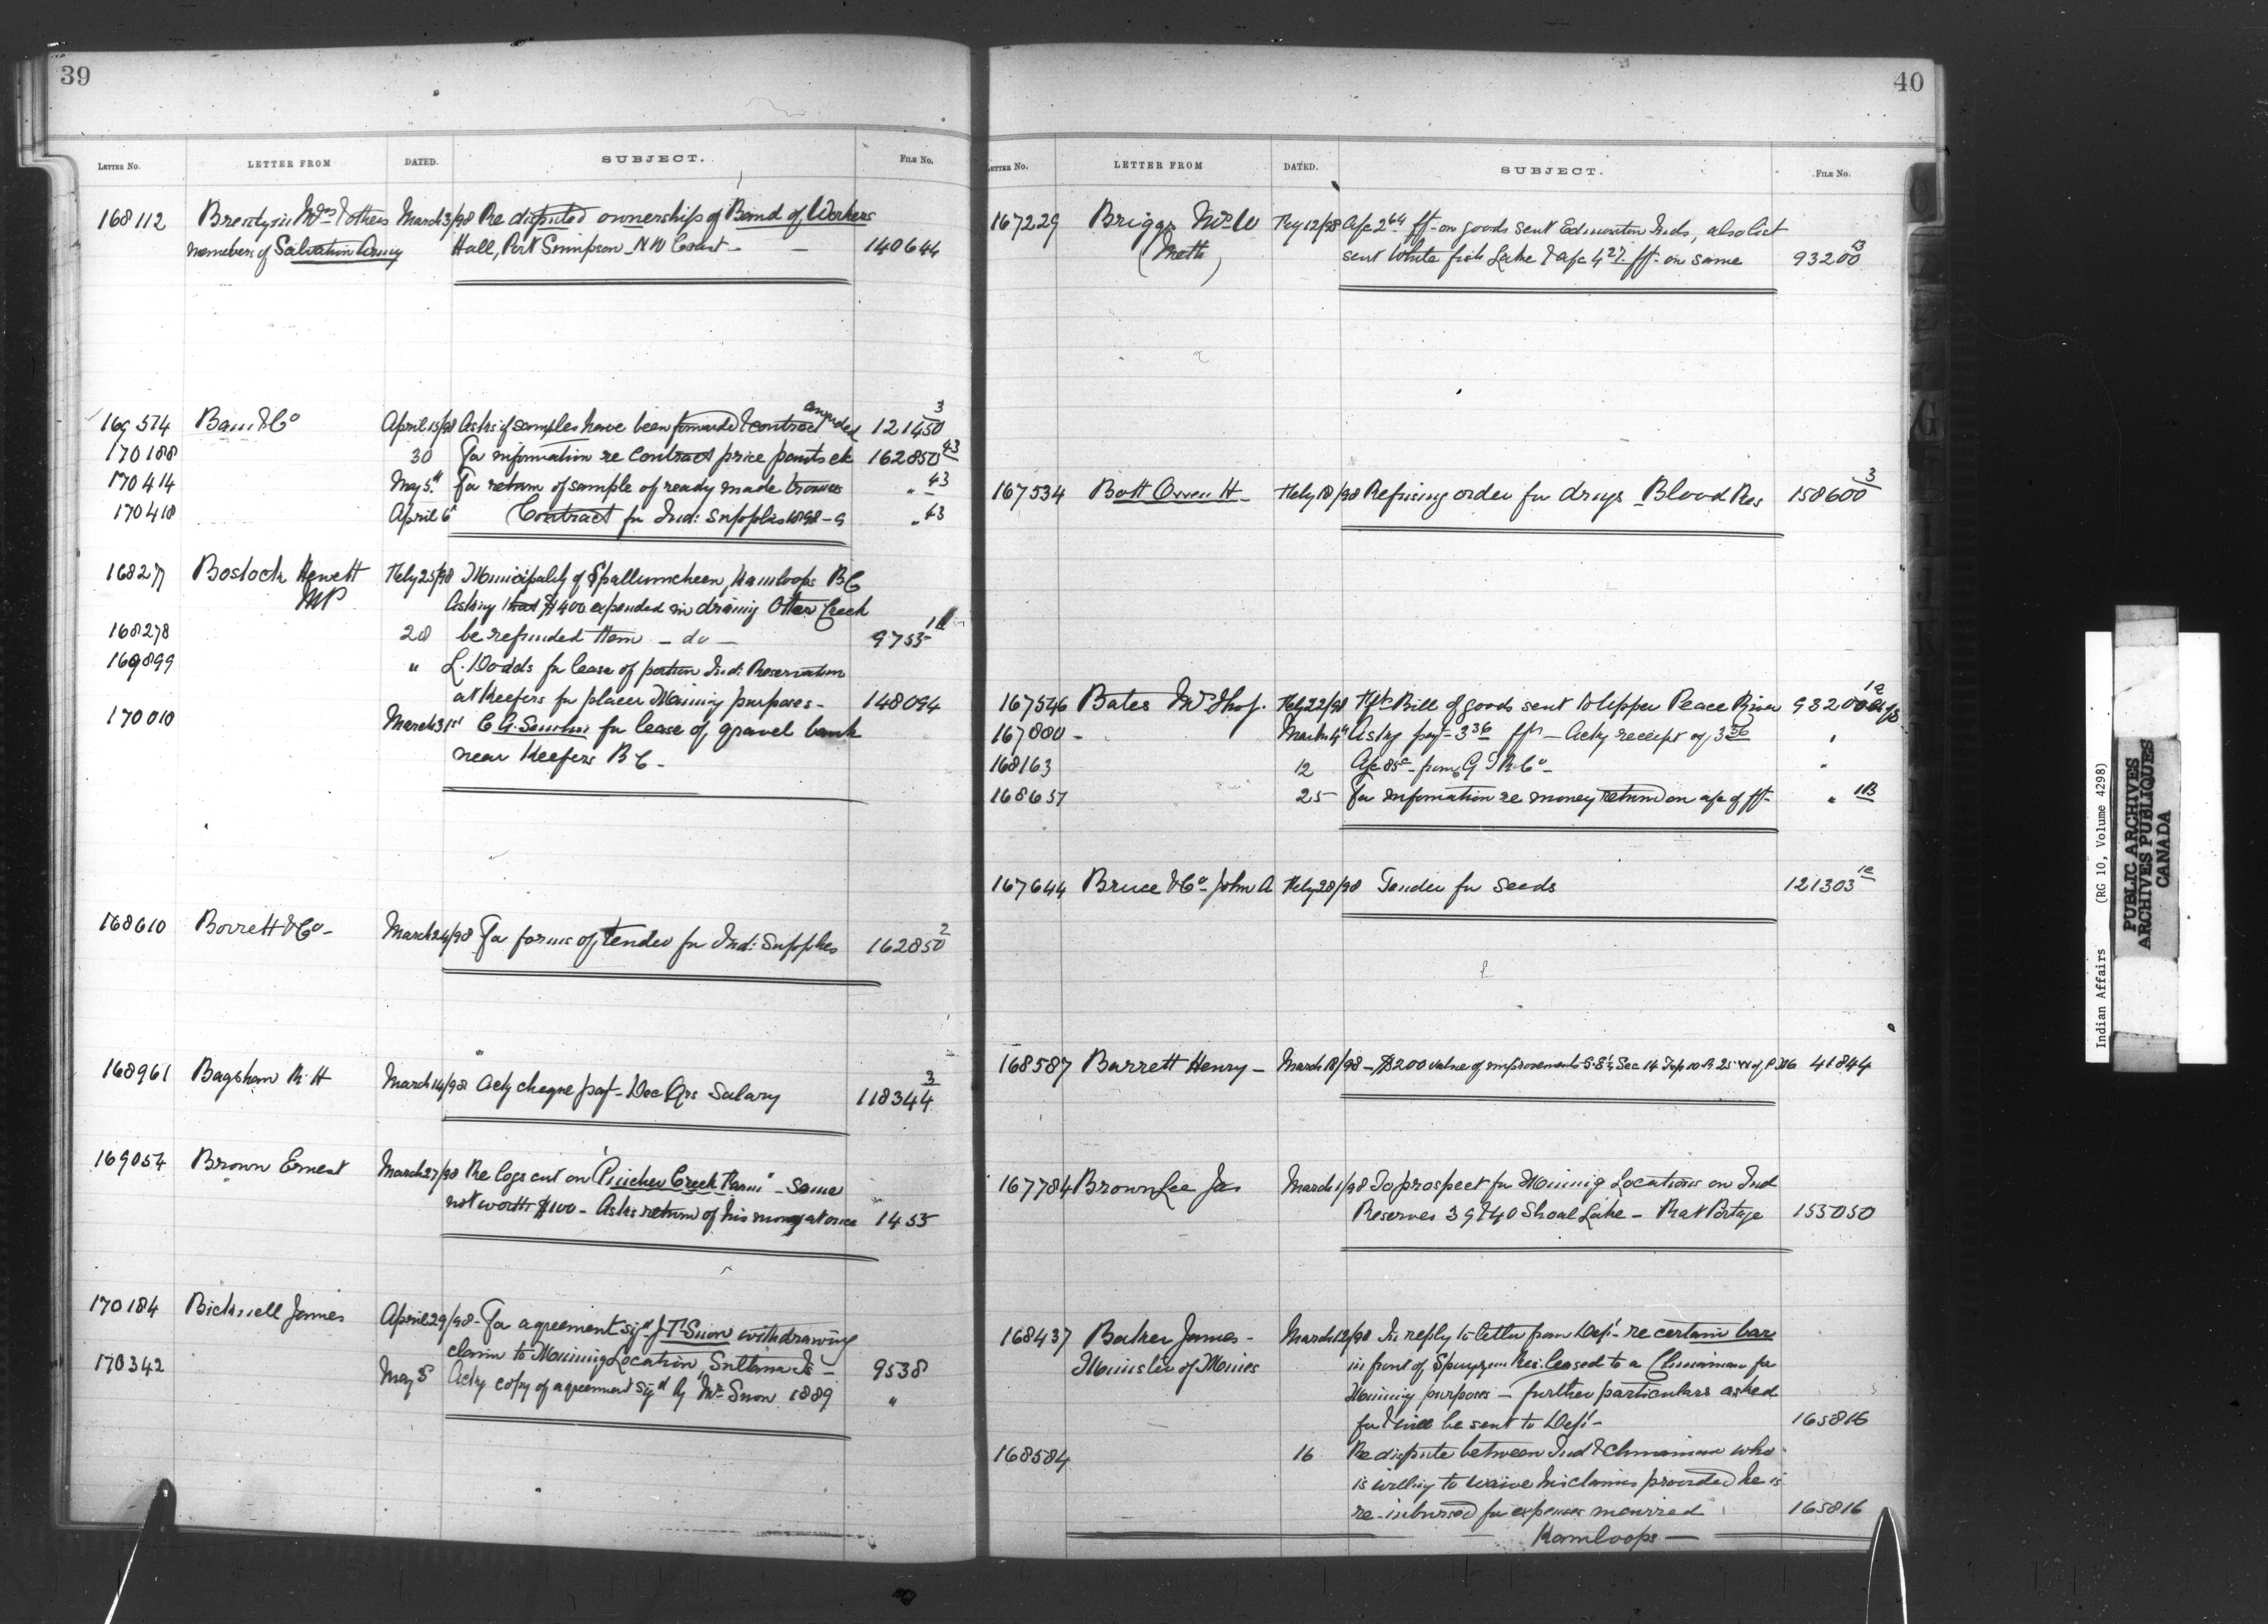 39
LETTER NO. LETTER FROM DATED. SUBJECT. FILE No.
168112 Wm & others March 3/98 Re disputed ownership of Band of Workers
members of Salvation Army Hall, Port Simpson - N W Coast - — 140644
169574 & Co April 15/98 Asks if samples have been forwarded & contract awarded 121450 3
170188 30 For information re contract price pants etc 162850 43
170414 May 5th For return of sample of ready made trousers " 43
170418 April 6th Contract for Ind: Supplies 1898-9 " 43
168277 Bostock Hewett Feby 25/98 Municipality of Spallumcheen, Kamloops BC
MP Asking that $400 expended in draining Otter Creek
168278 28 be refunded them - do - 9755
169899 " L. Dodds for lease of portion Ind: Reservation
at Keefers for placer Mining purposes - 148094
170010 March 31st C G. for lease of gravel bank
near Keefers B C -
168610 Borrett & Co - March 24/98 For forms of tender for Ind: Supplies 162850 2
168961 Bagshaw R H March 14/98 Ackg cheque payt - Dec Qrs Salary 118344 3
169054 Brown Ernest March 27/98 Re logs cut on "Pincher Creek Farm" - Same
not worth $100 - Asks return of his money at once 1455
170184 Bicknell James April 29/98 - For agreement sigd J T Snow withdrawing
claim to Mining Location, Sultana Is - 9538
170342 May 5 Ackg copy of agreement sigd by Mr Snow 1889 "
40
LETTER No. LETTER FROM DATED. SUBJECT. FILE No.
167229 Briggs W Feby 12/98 A/c 2 64 frt - on goods sent Edmonton Inds, also list
(Meth) sent White fish Lake & a/c 4 27 frt - on same 93200
167534 Bott Owen H - Feby 18/98 Refusing order for drugs - Blood Res 158600 3
167546 Bates Mr Thos. Feby 22/98 Bill of goods sent to Upper Peace River 93200
167880 - March 4th Asking payt - 3 36 frt - Ackg receipt of 3 36 "
168163 12 A/c 85c - from G T R Co - "
168657 25 For information re money returned on a/c of frt - "
167644 Bruce & Co - John A Feby 28/98 Tender for seeds 121303
168587 Barrett Henry - March 18/98 - $200 value of improvements S.E¼ Sec 14 Tsp 10 R 25 W of P M 41844
167784 Brownlee Jas March 1/98 To prospect for Mining Locations on Ind
Reserves 39 & 40 Shoal Lake - Rat Portage 153050
168437 Baker James - March 12/98 In reply to letter from Dept - re certain bar
Minister of Mines in front of Spuzzum Res: leased to a Chinaman for
Mining purposes - further particulars asked
for & will be sent to Dept - 165816
168584 16 Re dispute between Ind & Chinaman who
is willing to waive his claims provided he is
re-imbursed for expenses incurred 165816
— Kamloops —
Indian Affairs (RG 10, Volume 4298)
PUBLIC ARCHIVES
ARCHIVES PUBLIQUES
CANADA